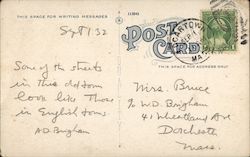 THIS SPACE FOR WRITING MESSAGES
Sept 1 32
Some of the streets
in this old town
look like those
in English towns.
A.D. Brigham
POST CARD
THIS SPACE FOR ADDRESS ONLY
Mrs. Bruce
% W.D. Brigham
41 Wheatland Ave
Dorchester
Mass.